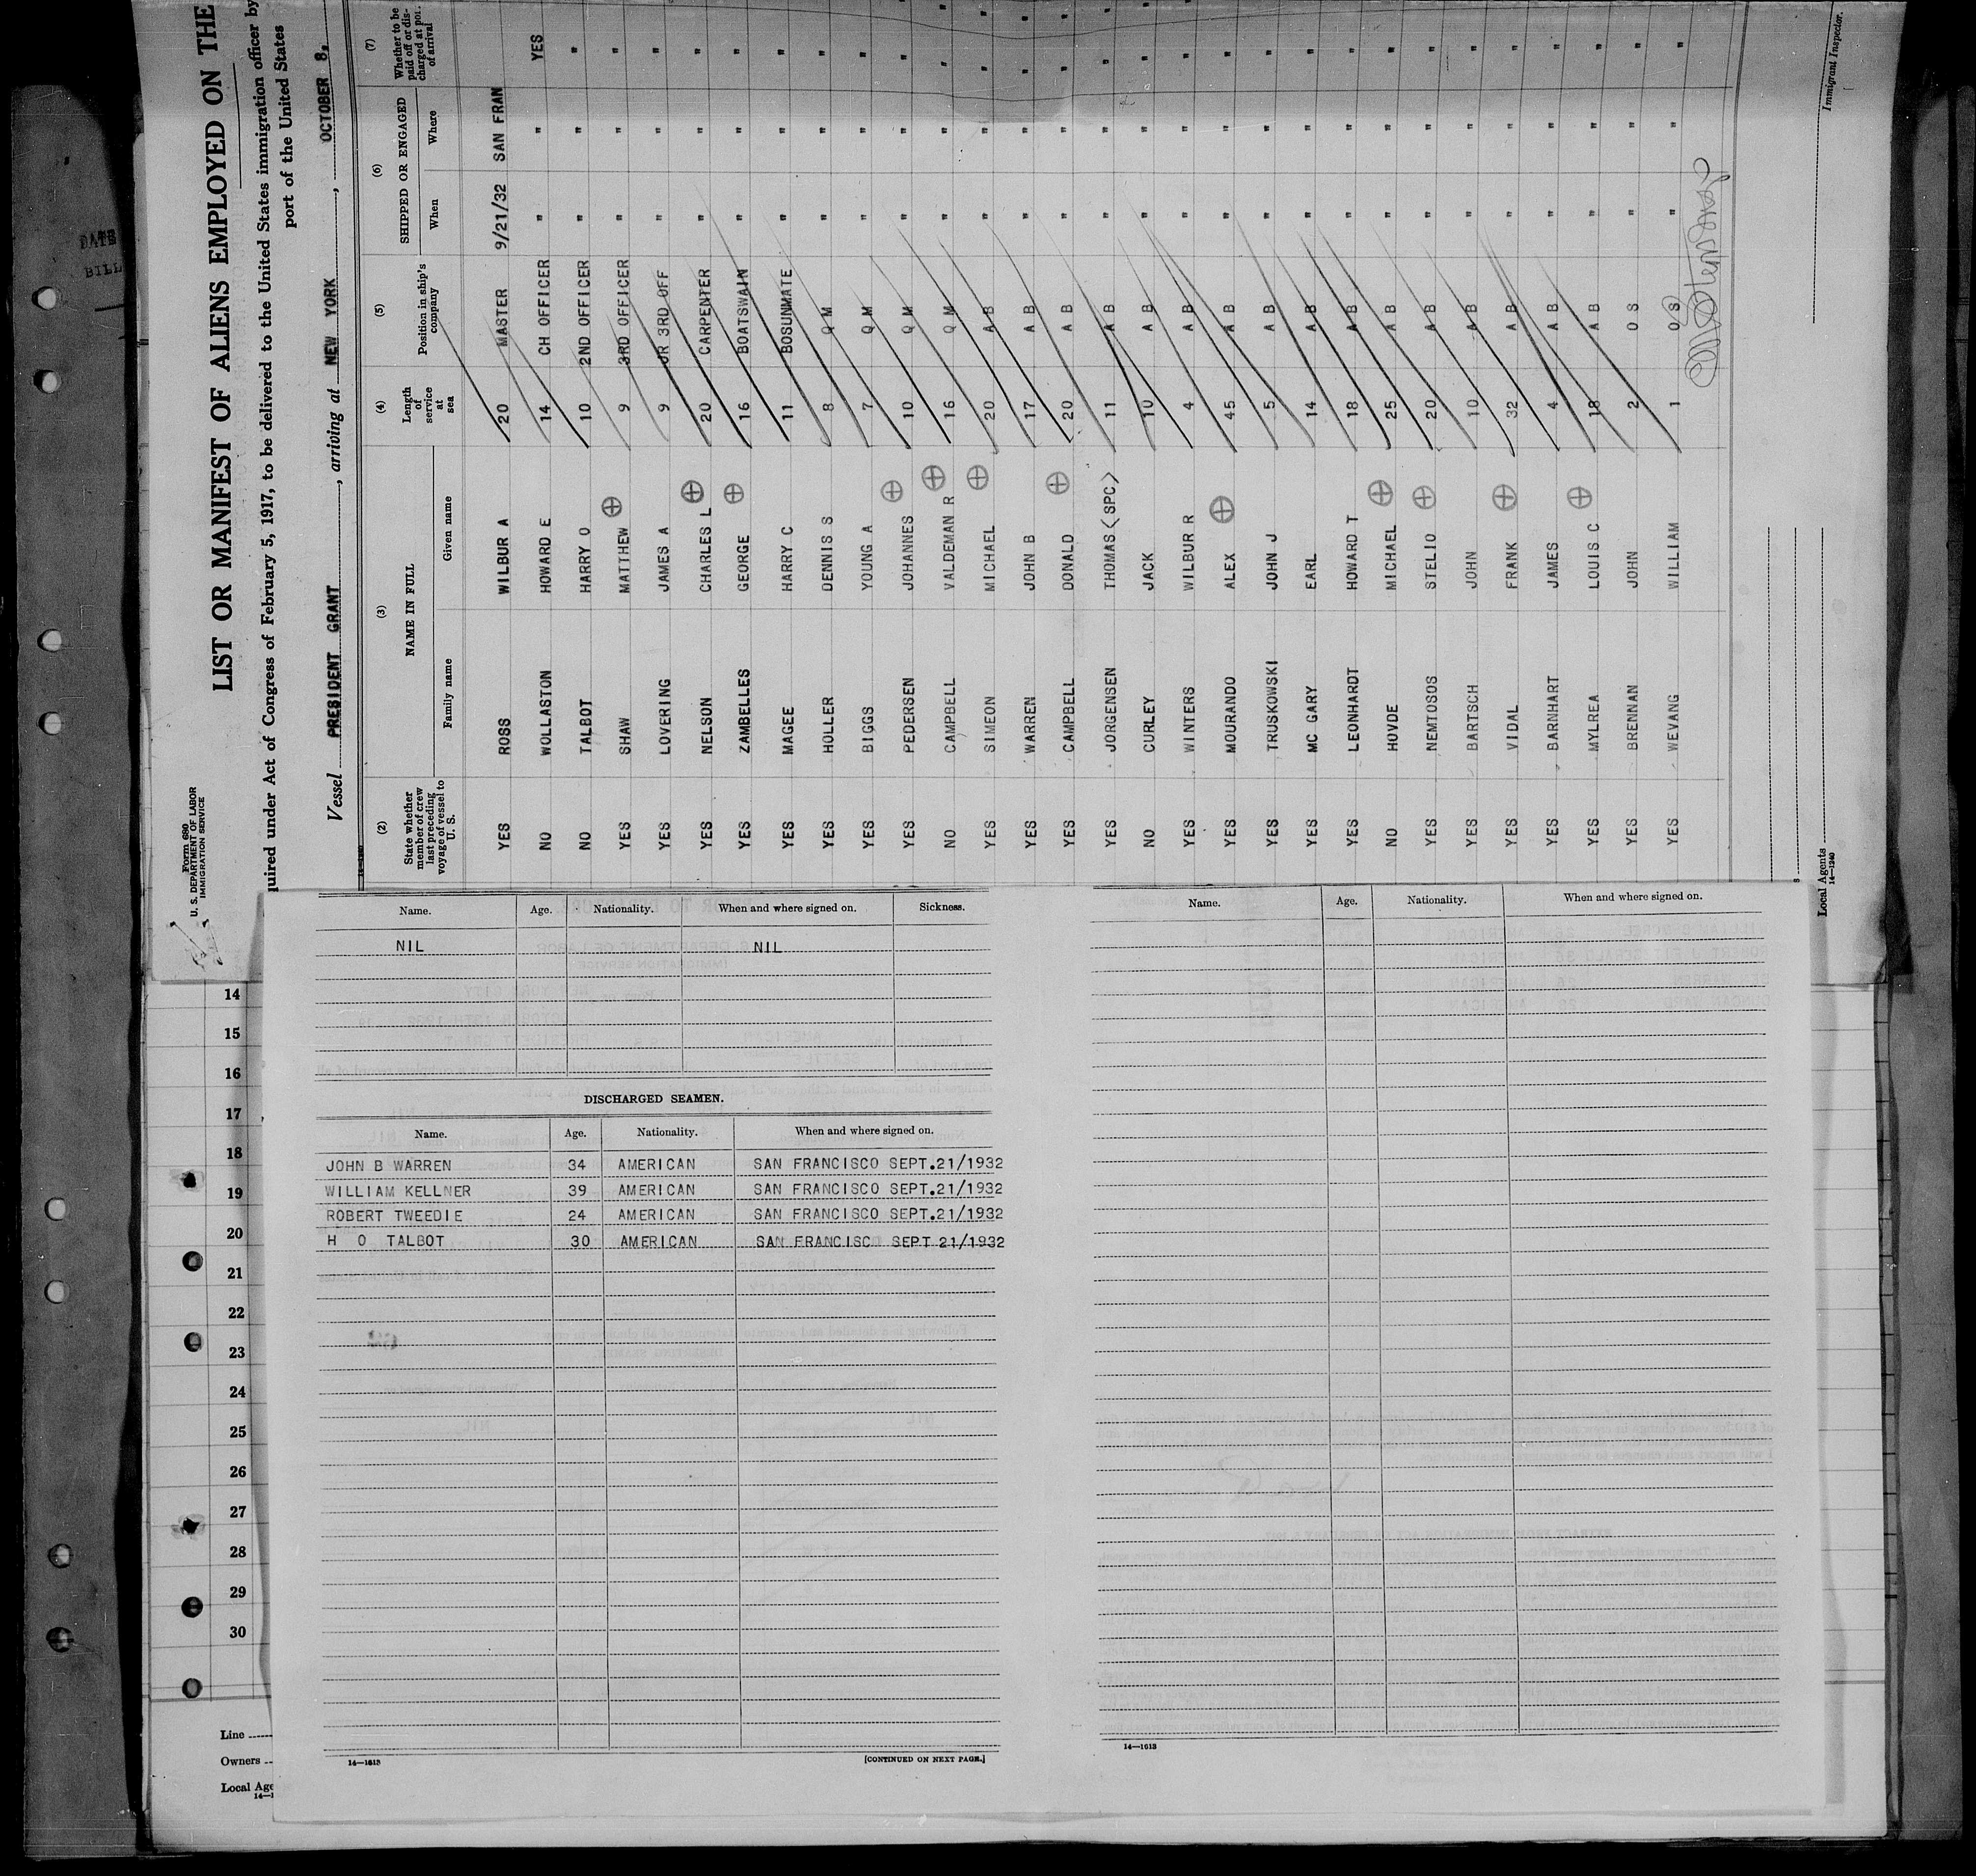 Form 680
U. S. DEPARTMENT OF LABOR
IMMIGRATION SERVICE
LIST OR MANIFEST OF ALIENS EMPLOYED ON THE
quired under Act of Congress of February 5, 1917, to be delivered to the United States immigration officer by
port of the United States
Vessel PRESIDENT GRANT, arriving at NEW YORK, OCTOBER 8,
(2) (3) (4) (5) (6) (7)
State whether member of crew last preceding voyage of vessel to U. S. NAME IN FULL Family name Given name Length of service at sea Position in ship's company SHIPPED OR ENGAGED When Where Whether to be paid off or discharged at port of arrival
YES ROSS WILBUR A 20 MASTER 9/21/32 SAN FRAN
NO WOLLASTON HOWARD E 14 CH OFFICER " " YES
NO TALBOT HARRY O 10 2ND OFFICER " " "
YES SHAW MATTHEW 9 3RD OFFICER " " "
YES LOVERING JAMES A 9 JR 3RD OFF " " "
YES NELSON CHARLES L 20 CARPENTER " " "
YES ZAMBELLES GEORGE 16 BOATSWAIN " " "
YES MAGEE HARRY C 11 BOSUNMATE " " "
YES HOLLER DENNIS S 8 Q M " " "
YES BIGGS YOUNG A 7 Q M " " "
YES PEDERSEN JOHANNES 10 Q M " " "
NO CAMPBELL VALDEMAN R 16 Q M " " "
YES SIMEON MICHAEL 20 A B " " "
YES WARREN JOHN B 17 A B " " "
YES CAMPBELL DONALD 20 A B " " "
YES JORGENSEN THOMAS (SPC) 11 A B " " "
NO CURLEY JACK 10 A B " " "
YES WINTERS WILBUR R 4 A B " " "
YES MOURANDO ALEX 45 A B " " "
YES TRUSKOWSKI JOHN J 5 A B " " "
YES MC GARY EARL 14 A B " " "
YES LEONHARDT HOWARD T 18 A B " " "
NO HOVDE MICHAEL 25 A B " " "
YES NEMTOSOS STELIO 20 A B " " "
YES BARTSCH JOHN 10 A B " " "
YES VIDAL FRANK 32 A B " " "
YES BARNHART JAMES 4 A B " " "
YES MYLREA LOUIS C 18 A B " " "
YES BRENNAN JOHN 2 O S " " "
YES WEVANG WILLIAM 1 O S " " "
Immigrant Inspector.
Local Agents
14—1240
Name. Age. Nationality. When and where signed on. Sickness.
NIL NIL
DISCHARGED SEAMEN.
Name. Age. Nationality. When and where signed on.
JOHN B WARREN 34 AMERICAN SAN FRANCISCO SEPT.21/1932
WILLIAM KELLNER 39 AMERICAN SAN FRANCISCO SEPT.21/1932
ROBERT TWEEDIE 24 AMERICAN SAN FRANCISCO SEPT.21/1932
H O TALBOT 30 AMERICAN SAN FRANCISCO SEPT 21/1932
14—1613
[CONTINUED ON NEXT PAGE.]
Name. Age. Nationality. When and where signed on.
14—1613
14
15
16
17
18
19
20
21
22
23
24
25
26
27
28
29
30
Line
Owners
Local Age
DATE
BILL